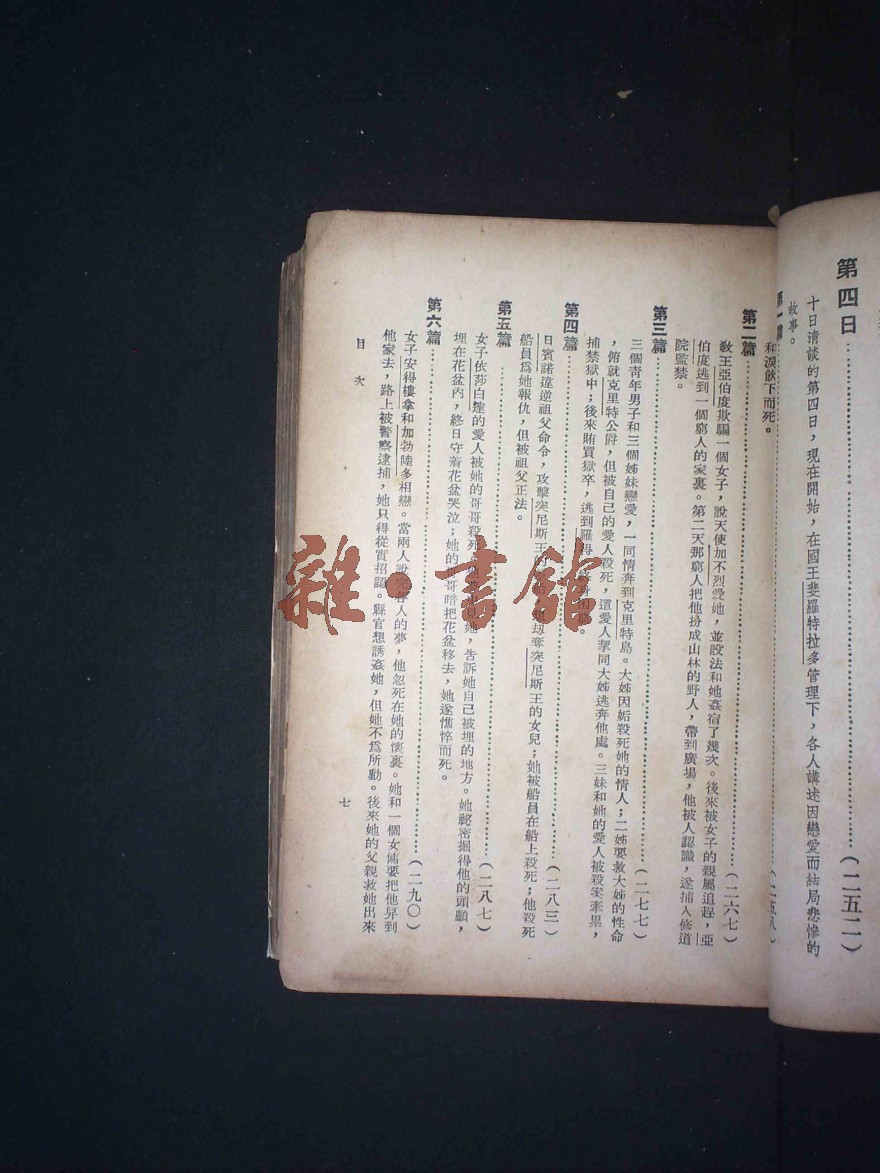 第四日……(二五二)
十日清談的第四日，現在開始，在國王斐羅特拉多管理下，各人講述因戀愛而結局悲慘的
故事。
第一篇……(二五八)
和淚飲下而死。
第二篇……(二六七)
教王亞伯度欺騙一個女子，說天使加不烈愛她，並設法和她姦宿了幾次。後來被女子的親屬追趕，亞
伯度逃到一個窮人的家裏。第二天那窮人把他扮成山林的野人，帶到廣場，他被人認識，遂捕入修道
院監禁。
第三篇……(二七七)
三個青年男子和三個姊妹戀愛，一同情奔到克里特島。大姊因妬殺死她的情人；二姊要救大姊的性命
，俯就克里特公爵，但被自己的愛人殺死，這愛人挈同大姊逃奔他處。三妹和她的愛人被殺案牽累，
捕禁獄中；後來賄買獄卒，逃到羅得
第四篇……(二八三)
日賓諾違逆祖父命令，攻擊突尼斯王的 刦奪突尼斯王的女兒；她被船員在船上殺死；他殺死
船員爲她報仇，但被祖父正法。
第五篇……(二八七)
女子依莎白達的愛人被她的哥哥殺死 她，告訴她自己被埋的地方。她祕密掘得他的頭顱，
埋在花盆內，終日守着花盆哭泣；她的哥哥暗把花盆移去，她遂憔悴而死。
第六篇……(二九〇)
女子安得樓拿和加勃陸多相戀。當兩人說完各人的夢，他忽死在她的懷裏。她和一個女傭要把他舁到
他家去，路上被警察逮捕，她只得從實招認。縣官想誘姦她，但她不爲所動。後來她的父親救她出來
目次
七
雜·書館